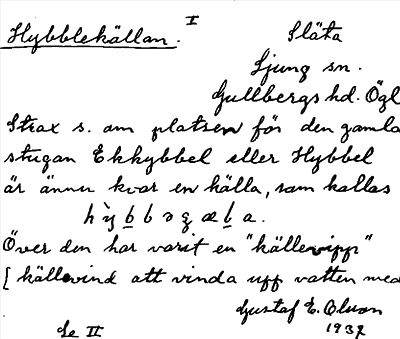 I
Hybblekällan.
Släta
Ljung sn.
Gullbergs hd. Ögl
Strax s. om platsen för den gamla
stugan Ekhybbel eller Hybbel
är ännu kvar en källa, som kallas
Över den har varit en "källevipp"
[ källevind att vinda upp vatten med
Gustaf E. Olson
1937
Se II